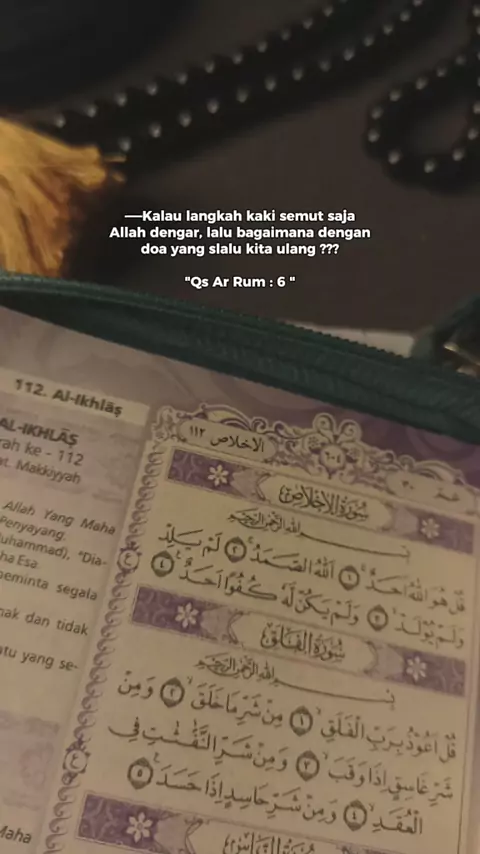 —Kalau langkah kaki semut saja
Allah dengar, lalu bagaimana dengan
doa yang slalu kita ulang ???
"Qs Ar Rum : 6 "
112. Al-Ikhlāṣ
AL-IKHLĀṢ
rah ke - 112
at. Makkiyyah
Allah Yang Maha
Penyayang.
uhammad), "Dia-
ha Esa.
eminta segala
nak dan tidak
atu yang se-
Maha
الاخلاص ١١٢
٦٠٤
٣٠
سُوْرَةُ الْاِخْلَاصِ
بِسْمِ اللّٰهِ الرَّحْمٰنِ الرَّحِيْمِ
قُلْ هُوَ اللّٰهُ اَحَدٌۚ ١ اَللّٰهُ الصَّمَدُۚ ٢ لَمْ يَلِدْ
وَلَمْ يُوْلَدْۙ ٣ وَلَمْ يَكُنْ لَّهٗ كُفُوًا اَحَدٌ ٤
سُوْرَةُ الْفَلَقِ
بِسْمِ اللّٰهِ الرَّحْمٰنِ الرَّحِيْمِ
قُلْ اَعُوْذُ بِرَبِّ الْفَلَقِۙ ١ مِنْ شَرِّ مَا خَلَقَۙ ٢ وَمِنْ
شَرِّ غَاسِقٍ اِذَا وَقَبَۙ ٣ وَمِنْ شَرِّ النَّفّٰثٰتِ فِى
الْعُقَدِۙ ٤ وَمِنْ شَرِّ حَاسِدٍ اِذَا حَسَدَ ٥
سُوْرَةُ النَّاسِ